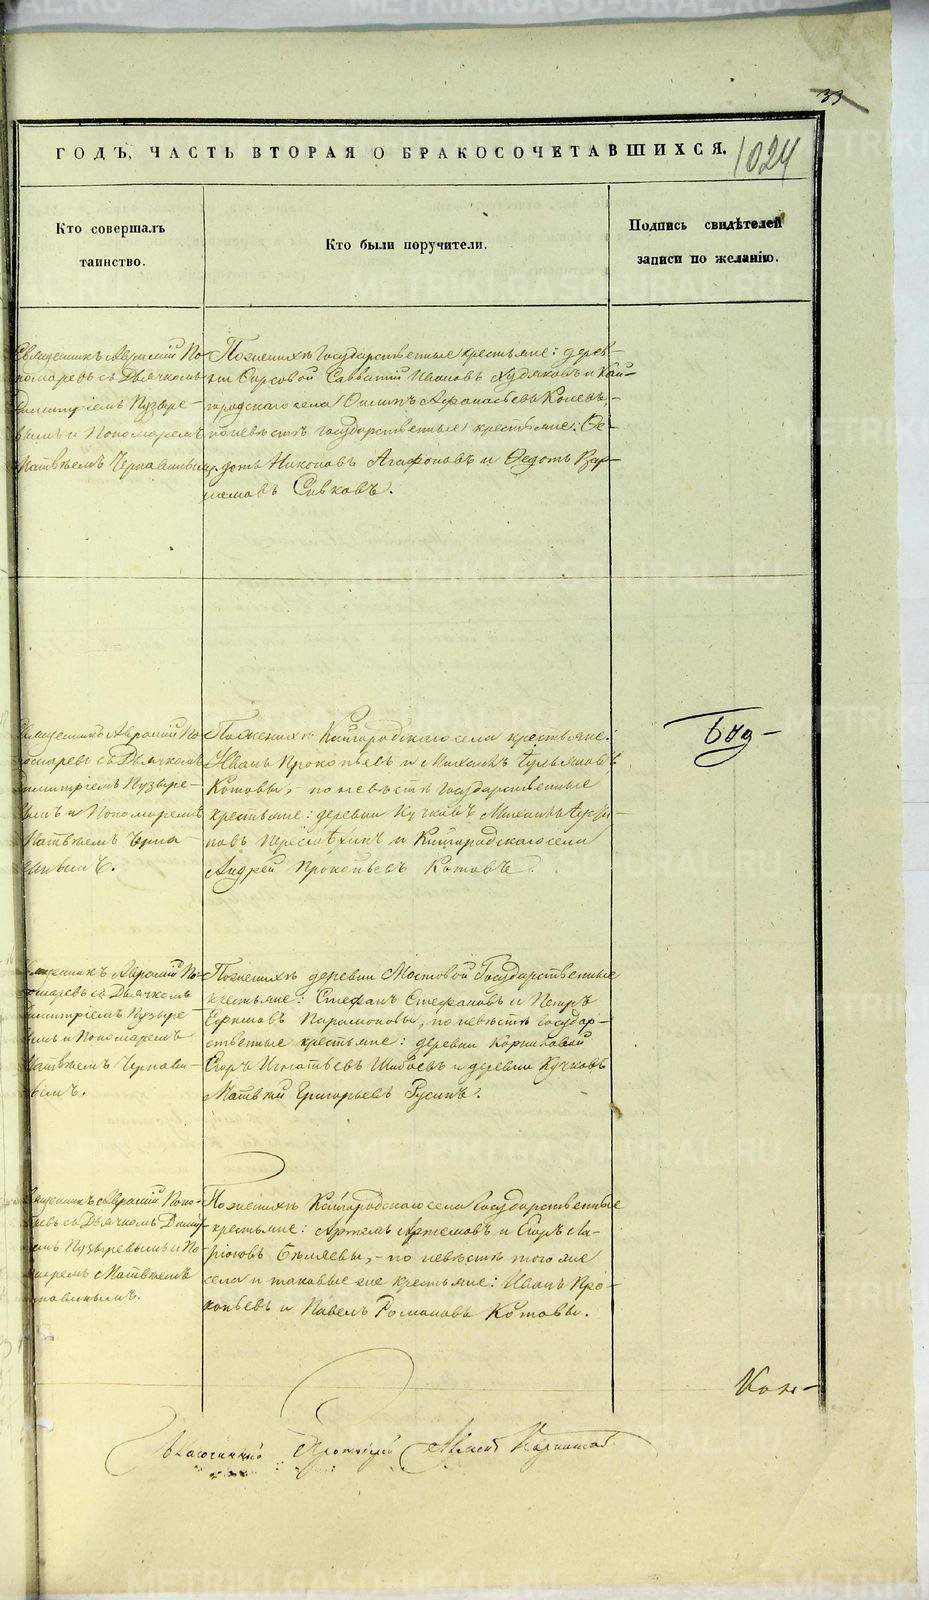 33
ГОДЪ, ЧАСТЬ ВТОРАЯ О БРАКОСОЧЕТАВШИХСЯ.
1024
Кто совершалъ
таинство.
Кто были поручители.
Подпись свидѣтелей
записи по желанію.
Священникъ Авраамій По-
номаревъ съ Дьячкомъ
Димитріемъ Пузыре-
вымъ и Пономаремъ
Матвѣемъ Чернавинымъ
По женихѣ Государственные крестьяне: дерев-
ни Савватій Ивановъ Худяковъ и Кай-
городскаго села Филипъ Афонасьевъ
по невѣстѣ государственные крестьяне: Ѳе-
дотъ Никоновъ Агафоновъ и Ѳедотъ Вар-
ламовъ Сивковъ.
Священникъ Авраамій По-
номаревъ съ Дьячкомъ
Димитріемъ Пузыре-
вымъ и Пономаремъ
Матвѣемъ Черна-
винымъ.
По женихѣ Кайгородскаго села крестьяне:
Иванъ Прокопьевъ и Михаилъ
Котовы, - по невѣстѣ государственные
крестьяне: деревни Кучковъ Михаилъ
и Кайгородскаго села
Андрей Прокопьевъ Котовъ.
Священникъ Авраамій По-
номаревъ съ Дьячкомъ
Димитріемъ Пузыре-
вымъ и Пономаремъ
Матвѣемъ Чернави-
нымъ.
По женихѣ деревни Мостовой Государственные
крестьяне: Стефанъ Стефановъ и Петръ
Ефимовъ Парамоновы, по невѣстѣ государ-
ственные крестьяне: деревни
Егоръ Игнатьевъ и деревни Кучковъ
Матвѣй Григорьевъ Русинъ.
Священникъ Авраамій Поно-
маревъ съ Дьячкомъ Димит-
ріемъ Пузыревымъ и По-
номаремъ Матвѣемъ
Чернавинымъ.
По женихѣ Кайгородскаго села Государственные
крестьяне: Артемъ Артемовъ и Егоръ Ла-
ріоновъ Бѣляевы, - по невѣстѣ того же
села и таковые же крестьяне: Иванъ Про-
копьевъ и Павелъ Романовъ Котовы.